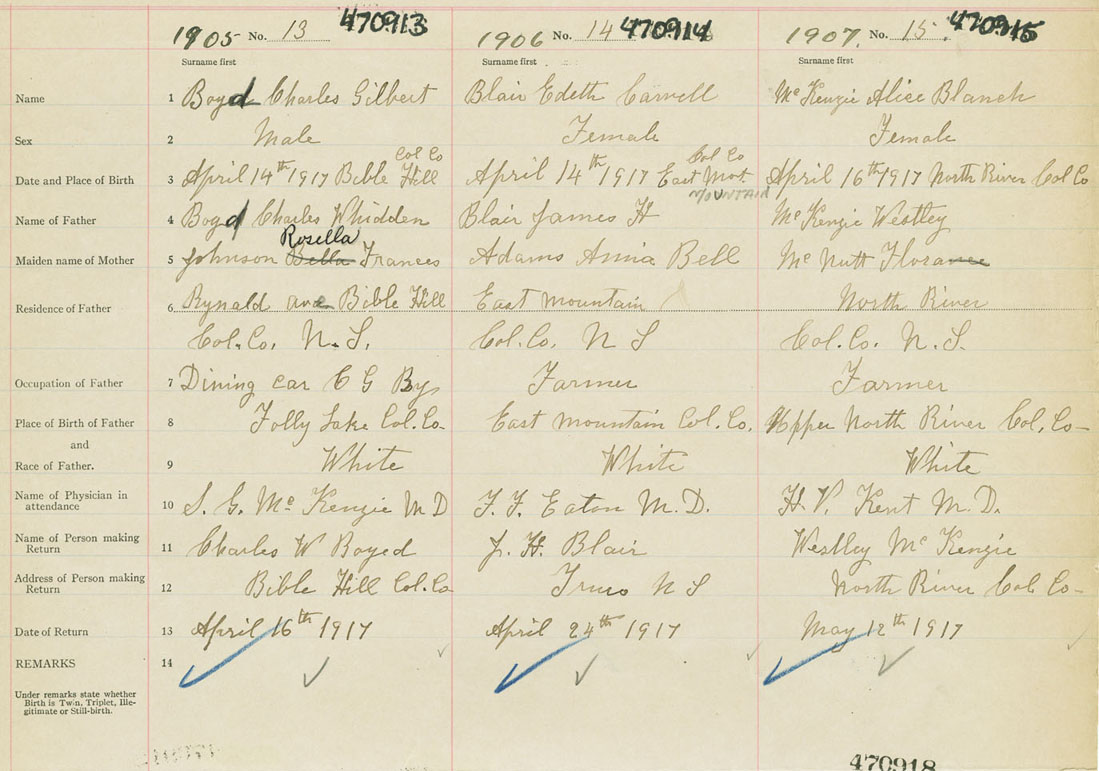 1905 No. 13 470913 1906 No. 14 470914 1907. No. 15. 470915
Surname first Surname first Surname first
Name 1 Boyd Charles Gilbert Blair Edeth Carvell McKenzie Alice Blanch
Sex 2 Male Female Female
Col Co Col Co
Date and Place of Birth 3 April 14th 1917 Bible Hill April 14th 1917 East Mot April 16th 1917 North River Col Co
MOUNTAIN
Name of Father 4 Boyd Charles Whidden Blair James H McKenzie Westley
Rosella
Maiden name of Mother 5 Johnson Bella Frances Adams Annia Bell McNutt Florance
Residence of Father 6 Rynald ave Bible Hill East mountain North River
Col. Co. N. S. Col. Co. N S Col. Co. N. S.
Occupation of Father 7 Dining car C G Ry Farmer Farmer
Place of Birth of Father 8 Folly Lake Col. Co. East mountain Col. Co. Upper North River Col. Co-
and
Race of Father. 9 White White White
Name of Physician in
attendance 10 S. G. McKenzie M D F. F. Eaton M. D. H. V. Kent M. D.
Name of Person making
Return 11 Charles W Boyed J. H. Blair Westley McKenzie
Address of Person making
Return 12 Bible Hill Col. Co Truro N S North River Col. Co-
Date of Return 13 April 16th 1917 April 24th 1917 May 12th 1917
REMARKS 14
Under remarks state whether
Birth is Twin, Triplet, Ille-
gitimate or Still-birth.
470918